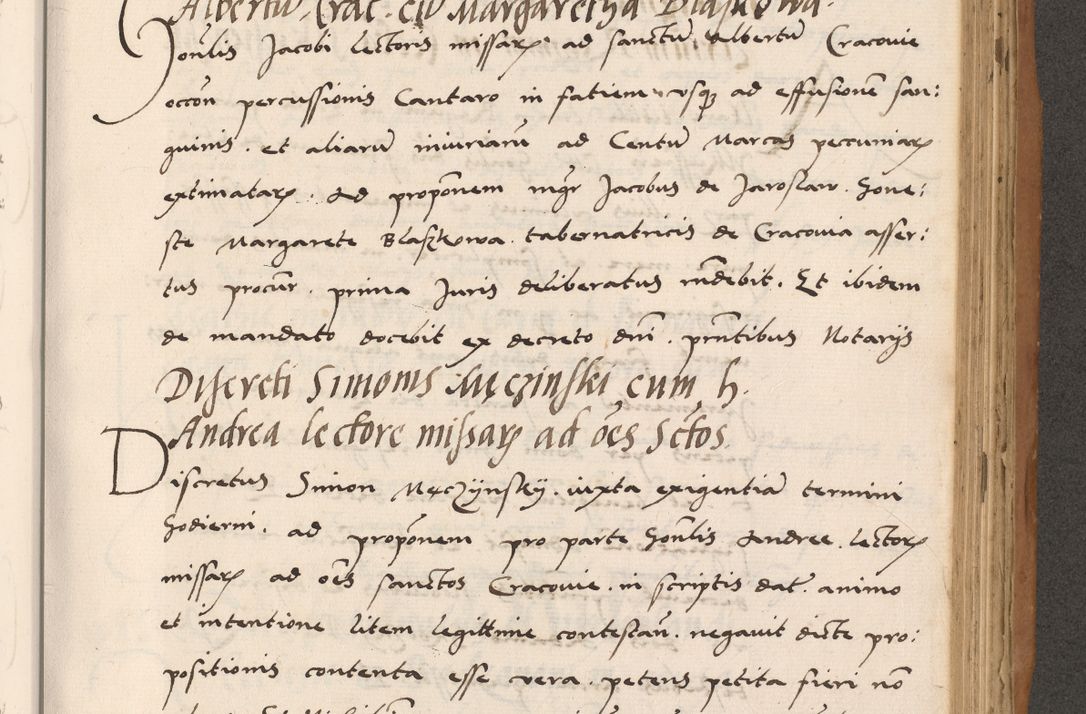 Albertū Crac. cū Margaretha Blaskowa.
Jonlis Jacobi lectoris missarꝝ ad sanctū Albertū Cracovie
occōn percussionis Cantaro in fatiem usqꝫ ad effusionē san:
guinis. et aliarū iniuriarū ad Centū Marcas peccuniarꝝ
extimatarꝝ. Ad propōnem mgr Jacobus de Jaroslaw. hone:
ste Margarete Blaszkowa. tabernatricis de Cracovia asser:
tus procūr. prima Juris deliberatus rn̄debit. Et ibidem
de mandato docebit ex decreto dn̄i. prn̄tibus Notarijs
Discreti Simonis Męczinski cum h.
Andrea lectore missarꝝ ad oēs Sc̄tos.
Discretus Simon Męczÿnskÿ. iuxta exigentiā termini
hodierni. ad propōnem pro parte honlis Andree. lectorꝝ
missarꝝ ad oēs sanctos Cracovie. in scriptis dat̄. animo
et intentione litem legittime contestān. negavit dicte pro:
positionis contenta esse vera. petens petita fieri nō